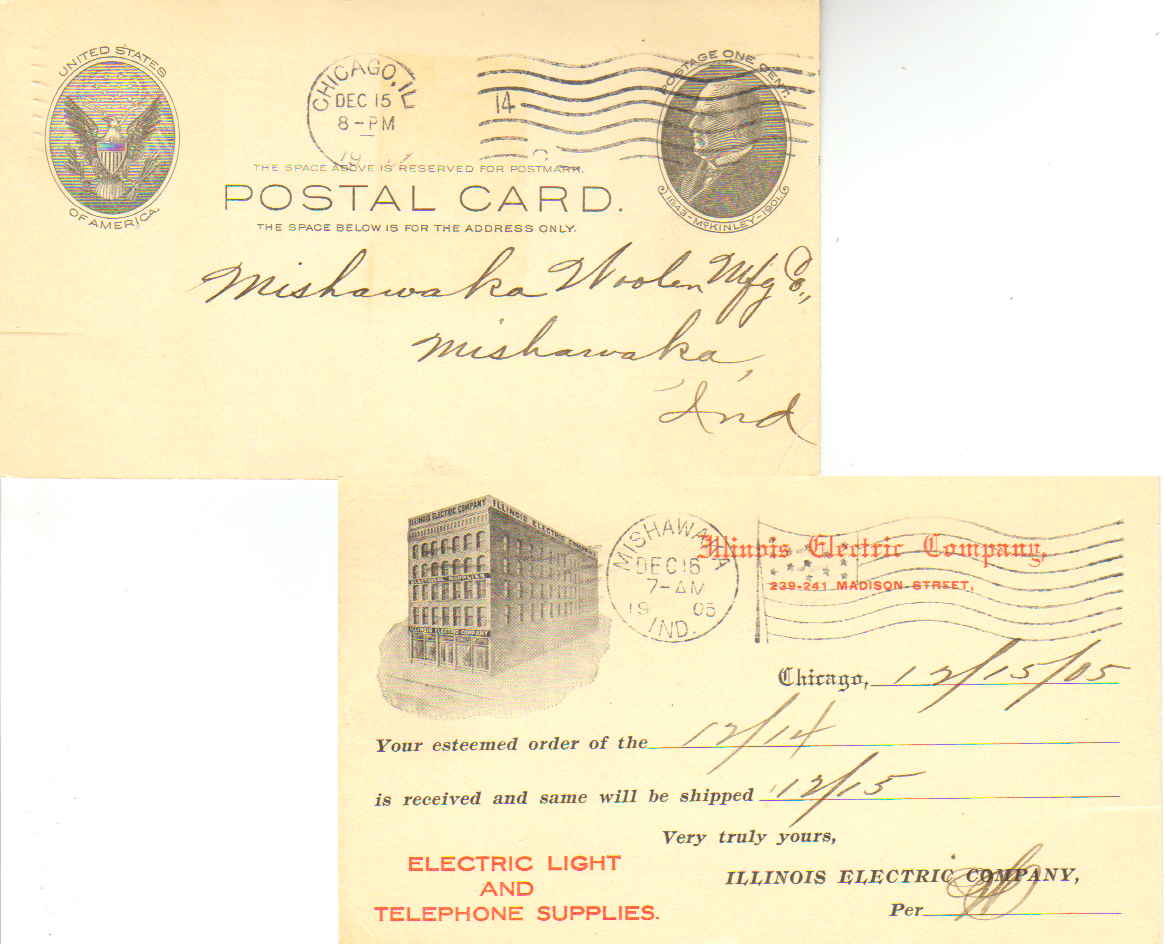 UNITED STATES
OF AMERICA.
CHICAGO, IL
DEC 15
8-PM
14
POSTAGE ONE CENT.
1843-McKINLEY-1901.
THE SPACE ABOVE IS RESERVED FOR POSTMARK.
POSTAL CARD.
THE SPACE BELOW IS FOR THE ADDRESS ONLY.
Mishawaka Woolen Mfg Co.,
Mishawaka,
Ind
ILLINOIS ELECTRIC COMPANY
ILLINOIS ELECTRIC COMPANY
ELECTRICAL SUPPLIES
ILLINOIS ELECTRIC COMPANY
MISHAWAKA
DEC 16
7-AM
1905
IND.
Illinois Electric Company,
239-241 MADISON STREET,
Chicago, 12/15/05
Your esteemed order of the 12/14
is received and same will be shipped 12/15
Very truly yours,
ELECTRIC LIGHT
AND
TELEPHONE SUPPLIES.
ILLINOIS ELECTRIC COMPANY,
Per